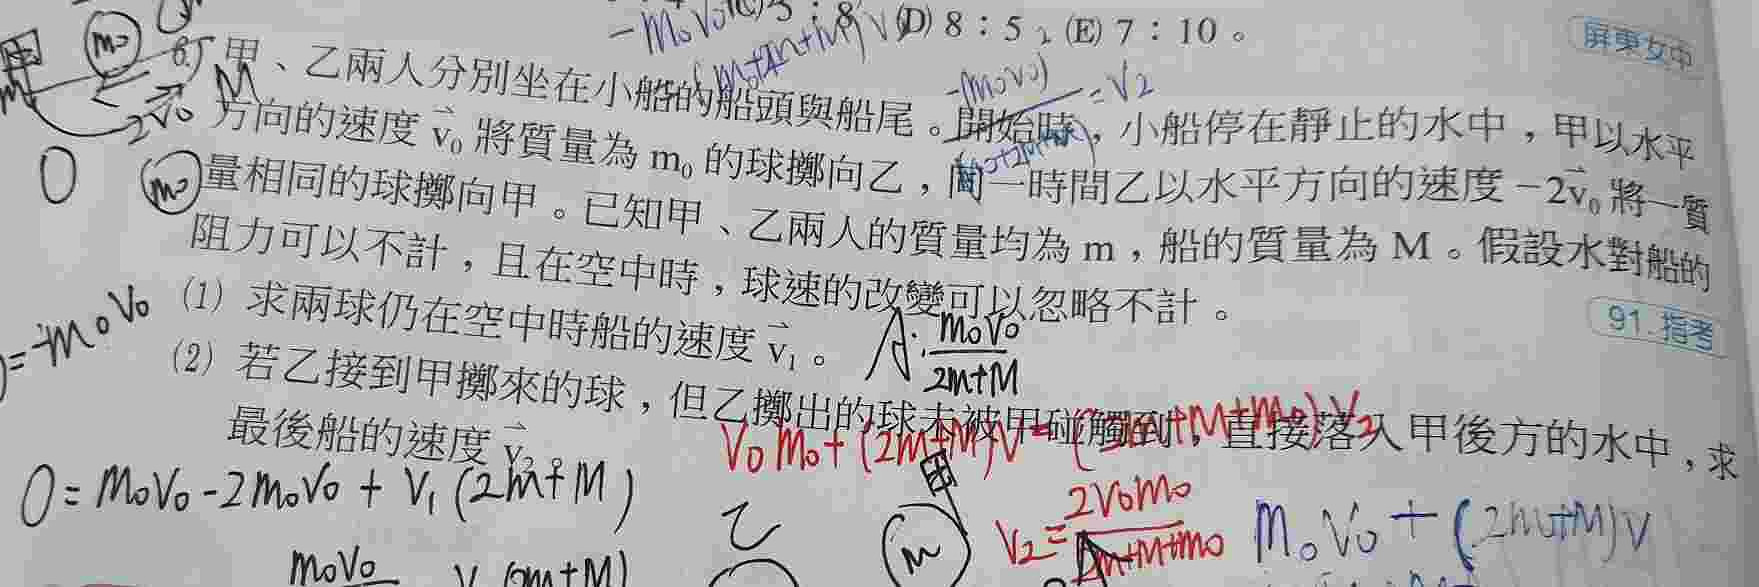 (D) 8：5 (E) 7：10。
屏東女中
甲、乙兩人分別坐在小船的船頭與船尾。開始時，小船停在靜止的水中，甲以水平
方向的速度 v₀ 將質量為 m₀ 的球擲向乙，同一時間乙以水平方向的速度 −2v₀ 將一質
量相同的球擲向甲。已知甲、乙兩人的質量均為 m，船的質量為 M。假設水對船的
阻力可以不計，且在空中時，球速的改變可以忽略不計。
91.指考
(1) 求兩球仍在空中時船的速度 v₁。
(2) 若乙接到甲擲來的球，但乙擲出的球未被甲碰觸到，直接落入甲後方的水中，求
最後船的速度 v₂。
甲
m₀
M
2v₀
0
m₀
-(m₀v₀)
=V₂
=-m₀v₀
A: m₀v₀
2m+M
0=m₀v₀-2m₀v₀+v₁(2m+M)
m₀v₀
乙
甲
m
V₂=2v₀m₀
2m+M+m₀
m₀v₀+(2m+M)v